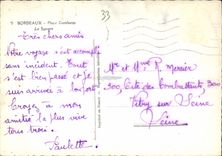 33
BORDEAUX - Place Gambetta
Très chers amis
Notre voyage s'est accompli
sans incident. Tout
s'est bien passé et je
suis arrivée à bon port
Croyez à mon
amitié la plus vive
tous trois.
Paulette
Mr et Mme R. Mercier
300, des Combattants
Vitry sur Seine
Seine